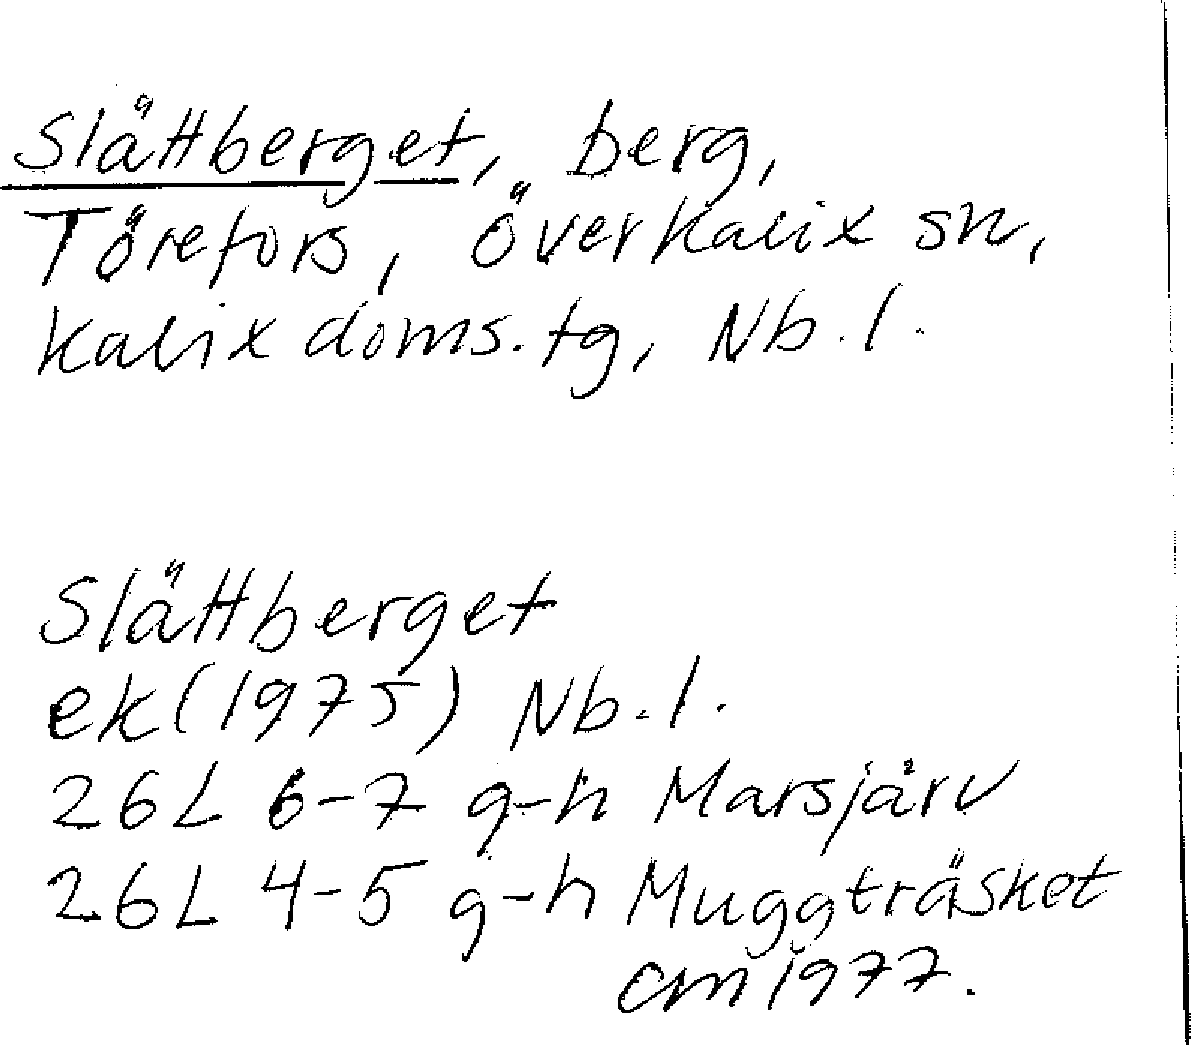 Slättberget, berg,
Törefors, Överkalix sn,
Kalix doms. tg, Nb. l.
Slättberget
ek (1975) Nb. l.
26L 6-7 g-h Marsjärv
26L 4-5 g-h Muggträsket
cm 1977.